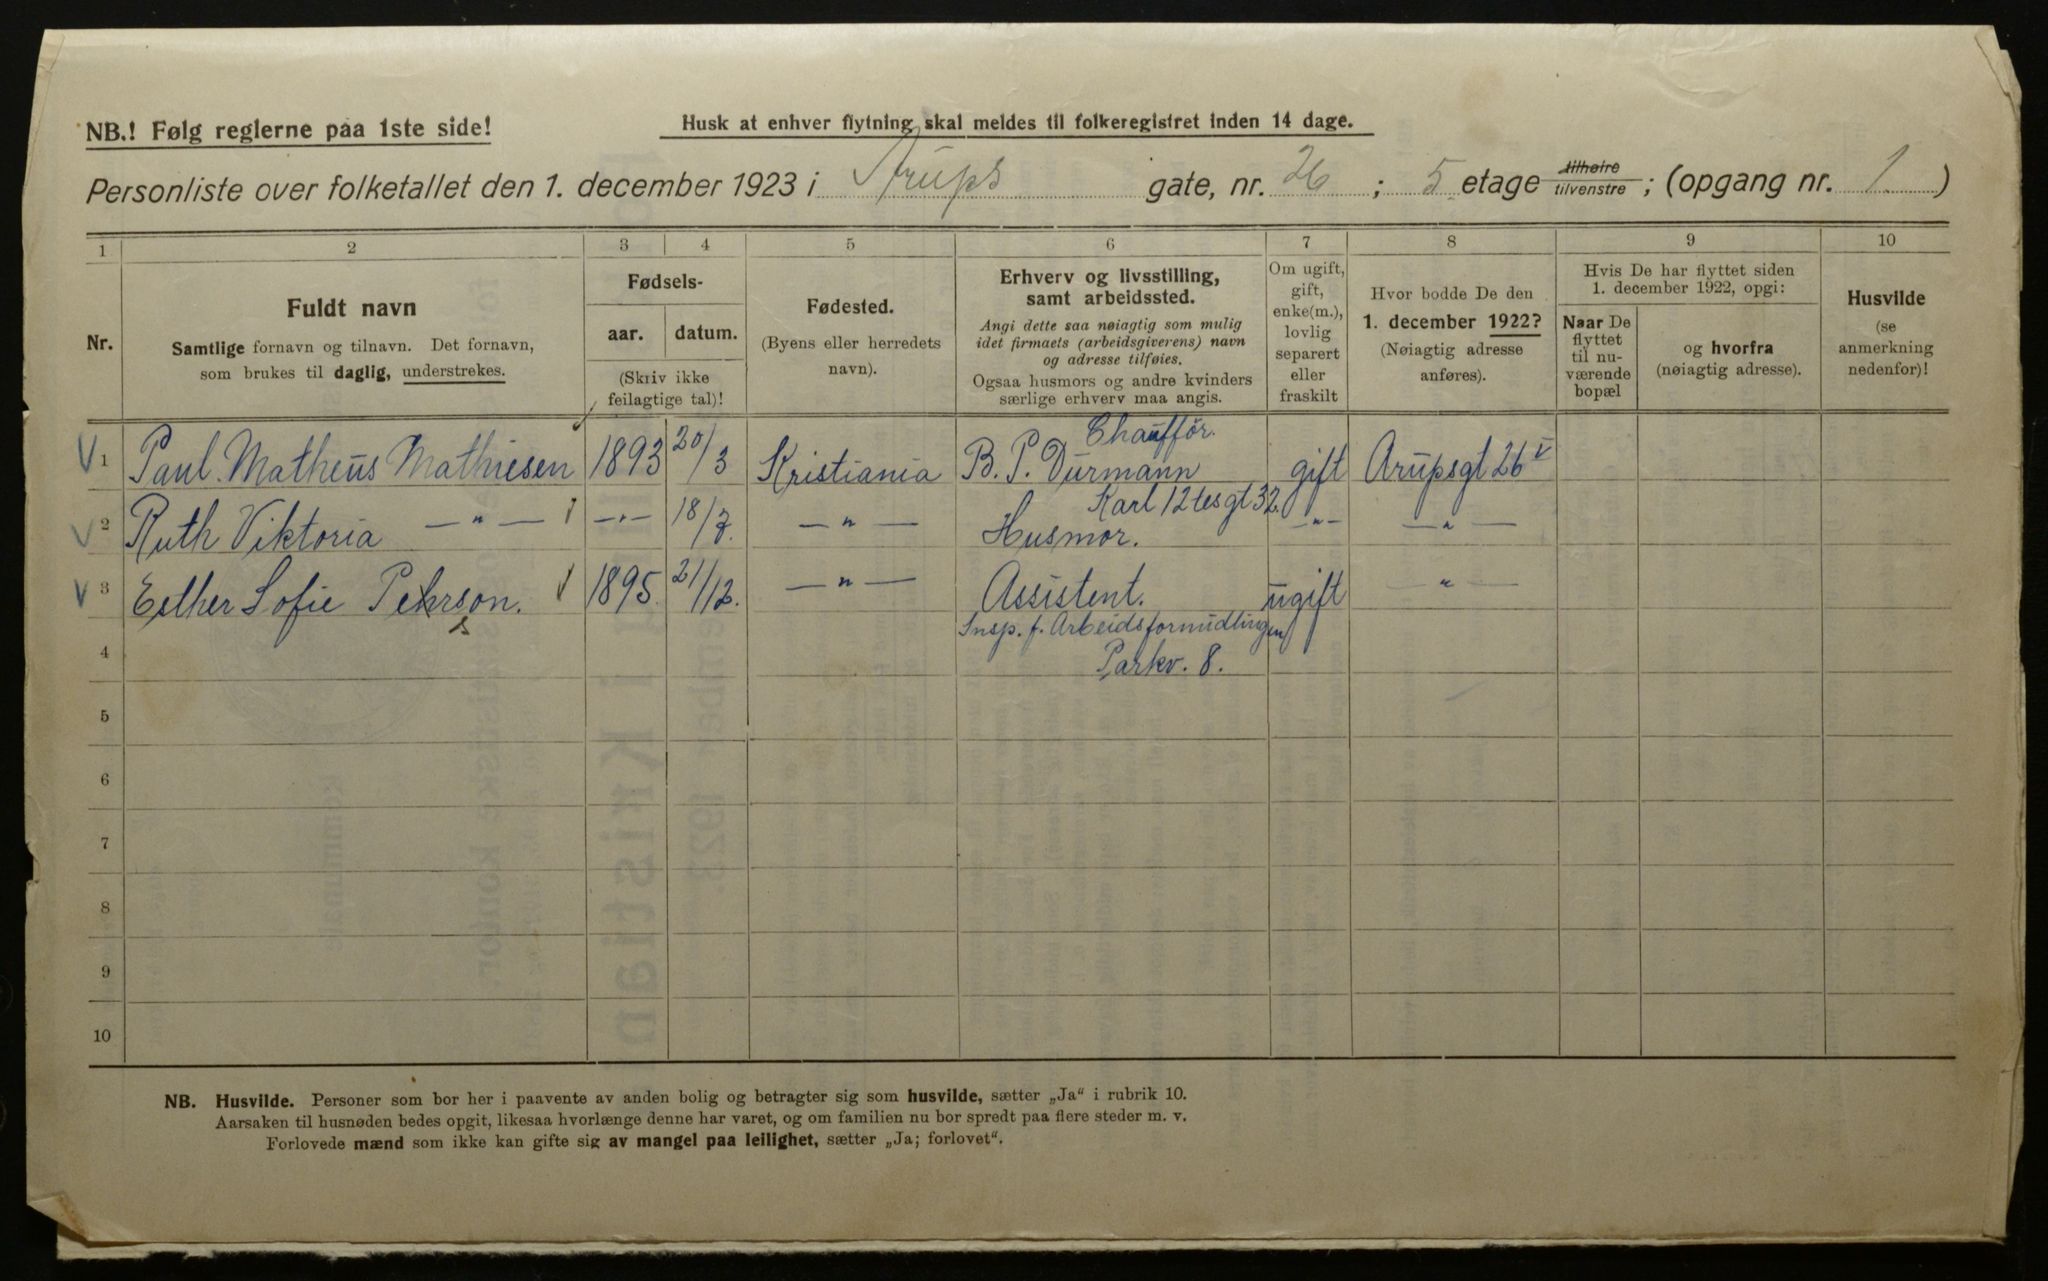 NB.! Følg reglerne paa 1ste side!
Husk at enhver flytning skal meldes til folkeregistret inden 14 dage.
Personliste over folketallet den 1. december 1923 i Arups gate, nr. 26 ; 5 etage tilhøire tilvenstre ; (opgang nr. 1 )
1 2 3 4 5 6 7 8 9 10
Nr.
Fuldt navn
Samtlige fornavn og tilnavn. Det fornavn,
som brukes til daglig, understrekes.
Fødsels-
aar. datum.
(Skriv ikke
feilagtige tal)!
Fødested.
(Byens eller herredets
navn).
Erhverv og livsstilling,
samt arbeidssted.
Angi dette saa nøiagtig som mulig
idet firmaets (arbeidsgiverens) navn
og adresse tilføies.
Ogsaa husmors og andre kvinders
særlige erhverv maa angis.
Om ugift,
gift,
enke(m.),
lovlig
separert
eller
fraskilt
Hvor bodde De den
1. december 1922?
(Nøiagtig adresse
anføres).
Hvis De har flyttet siden
1. december 1922, opgi:
Naar De
flyttet
til nu-
værende
bopæl
og hvorfra
(nøiagtig adresse).
Husvilde
(se
anmerkning
nedenfor)!
Chauffør.
V 1 Paul Matheus Mathiesen 1893 20/3 Kristiania B. P. Durmann gift Arupsgt 26 V
Karl 12tesgt 32.
V 2 Ruth Viktoria — " — — " — 18/7. — " — Husmor. — " — — " —
V 3 Esther Sofie Pehrson. 1895. 21/12. — " — Assistent. ugift — " —
s
Insp. f. Arbeidsformidlingen
4 Parkv. 8.
5
6
7
8
9
10
NB. Husvilde. Personer som bor her i paavente av anden bolig og betragter sig som husvilde, sætter „Ja“ i rubrik 10.
Aarsaken til husnøden bedes opgit, likesaa hvorlænge denne har varet, og om familien nu bor spredt paa flere steder m. v.
Forlovede mænd som ikke kan gifte sig av mangel paa leilighet, sætter „Ja; forlovet“.